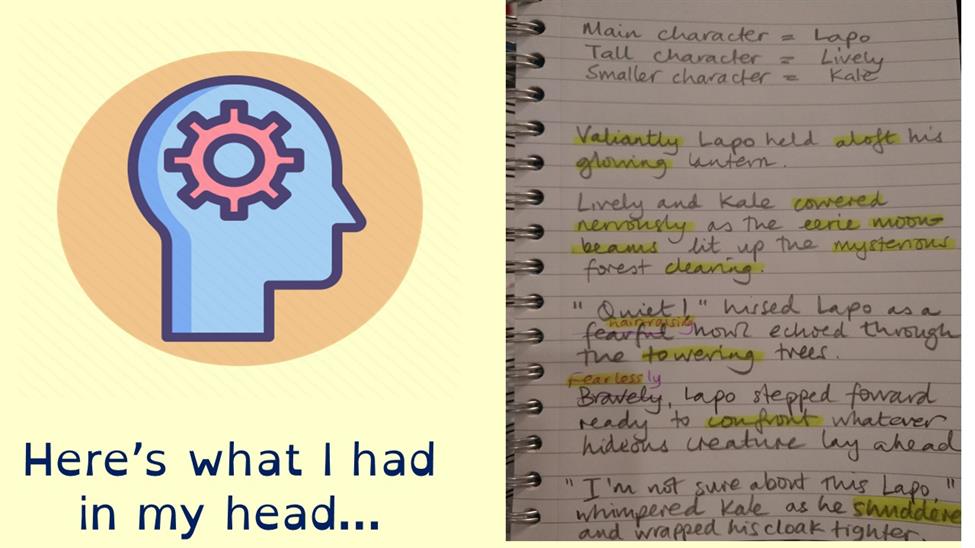 Here's what I had
in my head...
Main character = Lapo
Tall character = Lively
Smaller character = Kale
Valiantly Lapo held aloft his
glowing lantern.
Lively and Kale cowered
nervously as the eerie moon-
beams lit up the mysterious
forest clearing.
"Quiet!" hissed Lapo as a
hairraising
fearful howl echoed through
the towering trees.
Fearlessly
Bravely, Lapo stepped foward
ready to confront whatever
hideous creature lay ahead
"I'm not sure about this Lapo,"
whimpered Kale as he shuddere
and wrapped his cloak tighter.